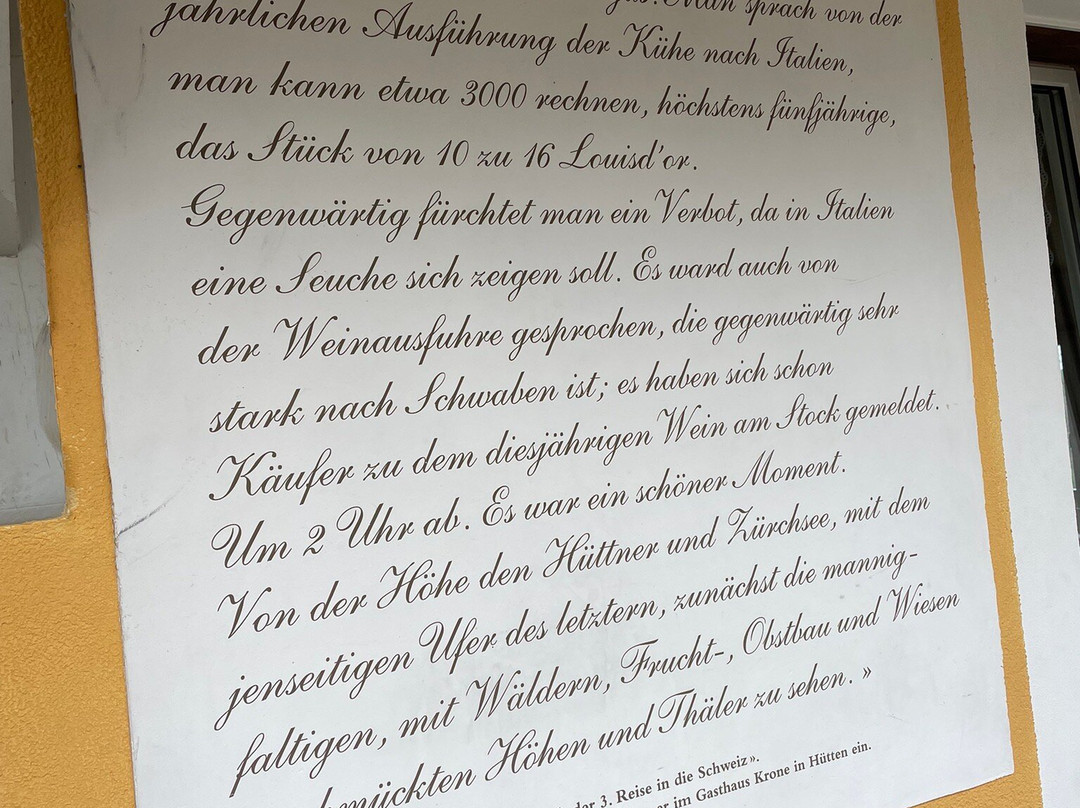 Man sprach von der
jährlichen Ausführung der Kühe nach Italien,
man kann etwa 3000 rechnen, höchstens fünfjährige,
das Stück von 10 zu 16 Louisd'or.
Gegenwärtig fürchtet man ein Verbot, da in Italien
eine Seuche sich zeigen soll. Es ward auch von
der Weinausfuhre gesprochen, die gegenwärtig sehr
stark nach Schwaben ist; es haben sich schon
Käufer zu dem diesjährigen Wein am Stock gemeldet.
Um 2 Uhr ab. Es war ein schöner Moment.
Von der Höhe den Hüttner und Zürchsee, mit dem
jenseitigen Ufer des letztern, zunächst die mannig-
faltigen, mit Wäldern, Frucht-, Obstbau und Wiesen
Höhen und Thäler zu sehen. »
3. Reise in die Schweiz».
im Gasthaus Krone in Hütten ein.